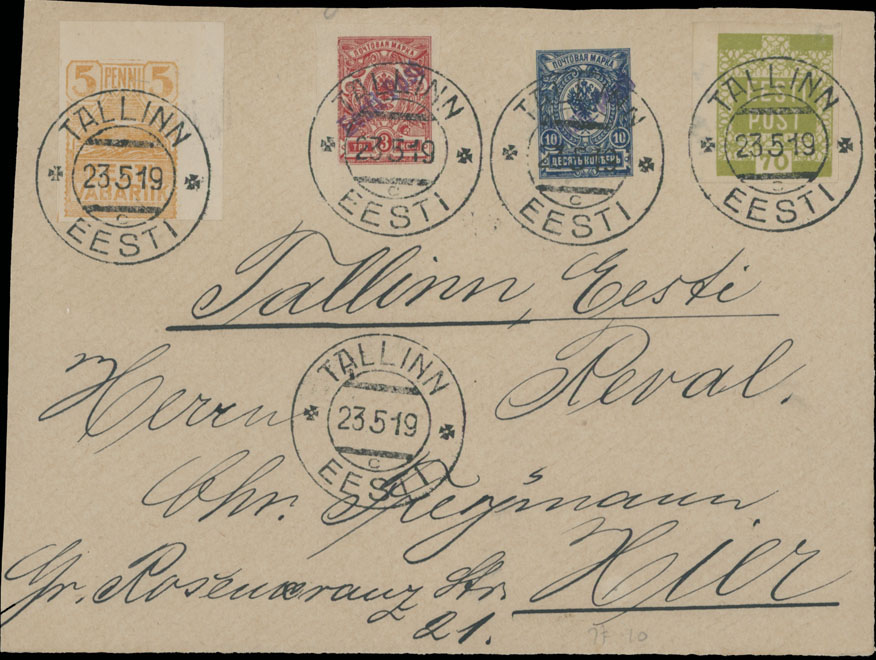 5 PENNI 5
VABARIIK
TALLINN
23.5.19
C
EESTI
ПОЧТОВАЯ МАРКА
3
TALLINN
23.5.19
C
EESTI
ПОЧТОВАЯ МАРКА
10 10
ДЕСЯТЬ КОПѢЕКЪ
23.5.19
C
EESTI
EESTI
POST
70
TALLINN
23.5.19
C
EESTI
Tallinn, Eesti
Reval.
TALLINN
23.5.19
C
EESTI
Herrn
Chr.
Gr. Rosenkranz Str. Hier
21.